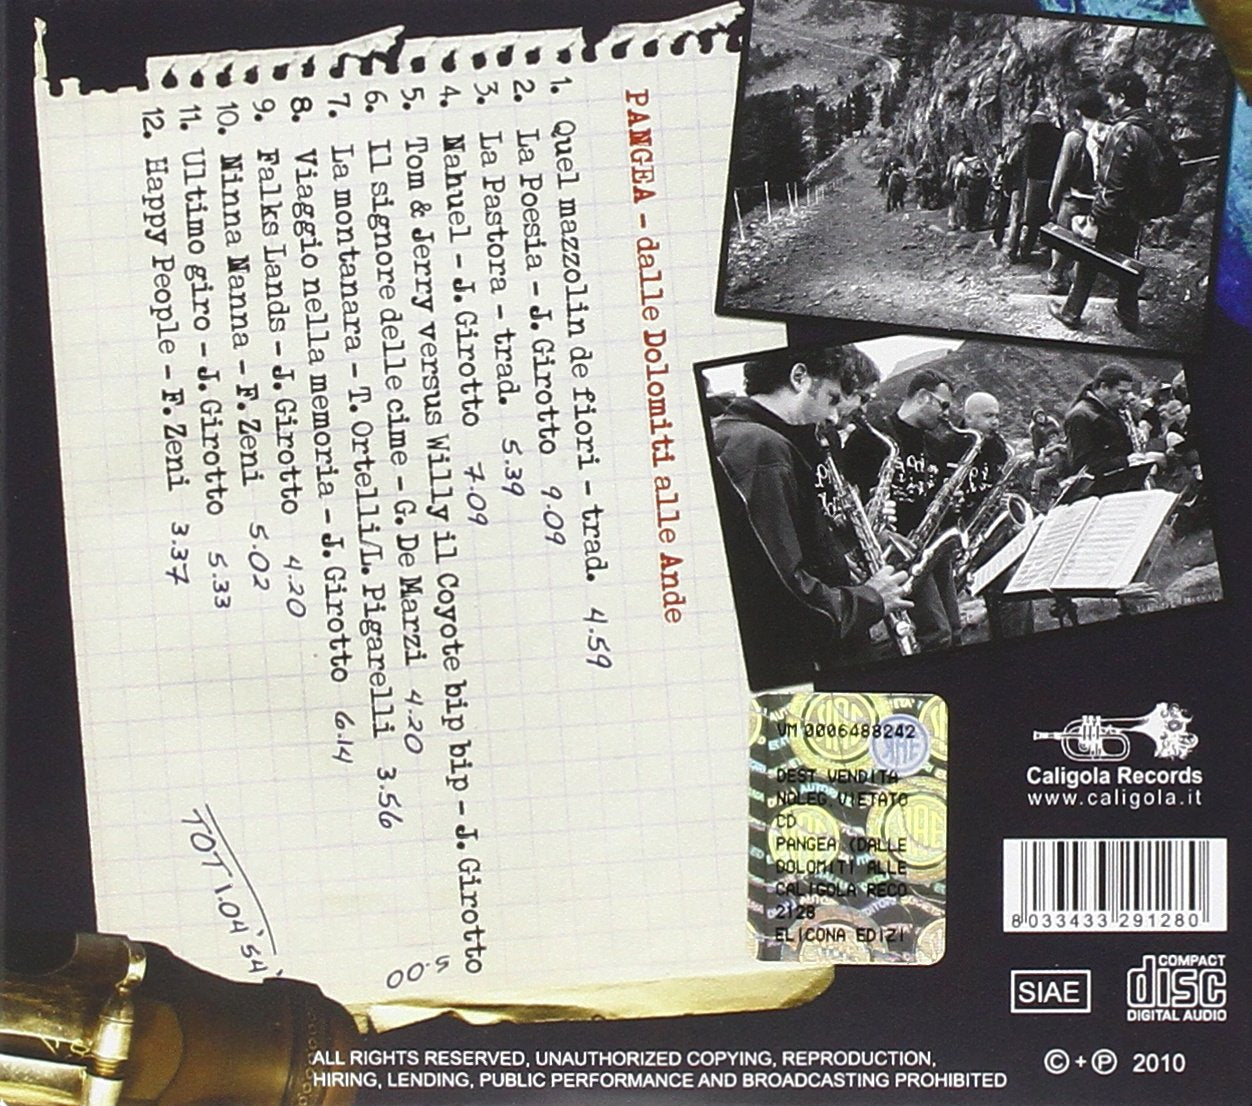 PANGEA - dalle Dolomiti alle Ande
1. Quel mazzolin de fiori - trad. 4.59
2. La Poesia - J. Girotto 9.09
3. La Pastora - trad. 5.39
4. Nahuel - J. Girotto 7.09
5. Tom & Jerry versus Willy il Coyote bip bip - J. Girotto 5.00
6. Il signore delle cime - G. De Marzi 4.20
7. La montanara - T. Ortelli/L. Pigarelli 3.56
8. Viaggio nella memoria - J. Girotto 6.14
9. Falks Lands - J. Girotto 4.20
10. Ninna Nanna - F. Zeni 5.02
11. Ultimo giro - J. Girotto 5.33
12. Happy People - F. Zeni 3.37
TOT 1.04'54"
VM 0006488242
DEST VENDITA
NOLEG.VIETATO
CD
PANGEA (DALLE
DOLOMITI ALLE
CALIGOLA RECO
2128
ELICONA EDIZI
Caligola Records
www.caligola.it
8 033433 291280
SIAE
COMPACT
disc
DIGITAL AUDIO
ALL RIGHTS RESERVED, UNAUTHORIZED COPYING, REPRODUCTION,
HIRING, LENDING, PUBLIC PERFORMANCE AND BROADCASTING PROHIBITED
© + ℗ 2010